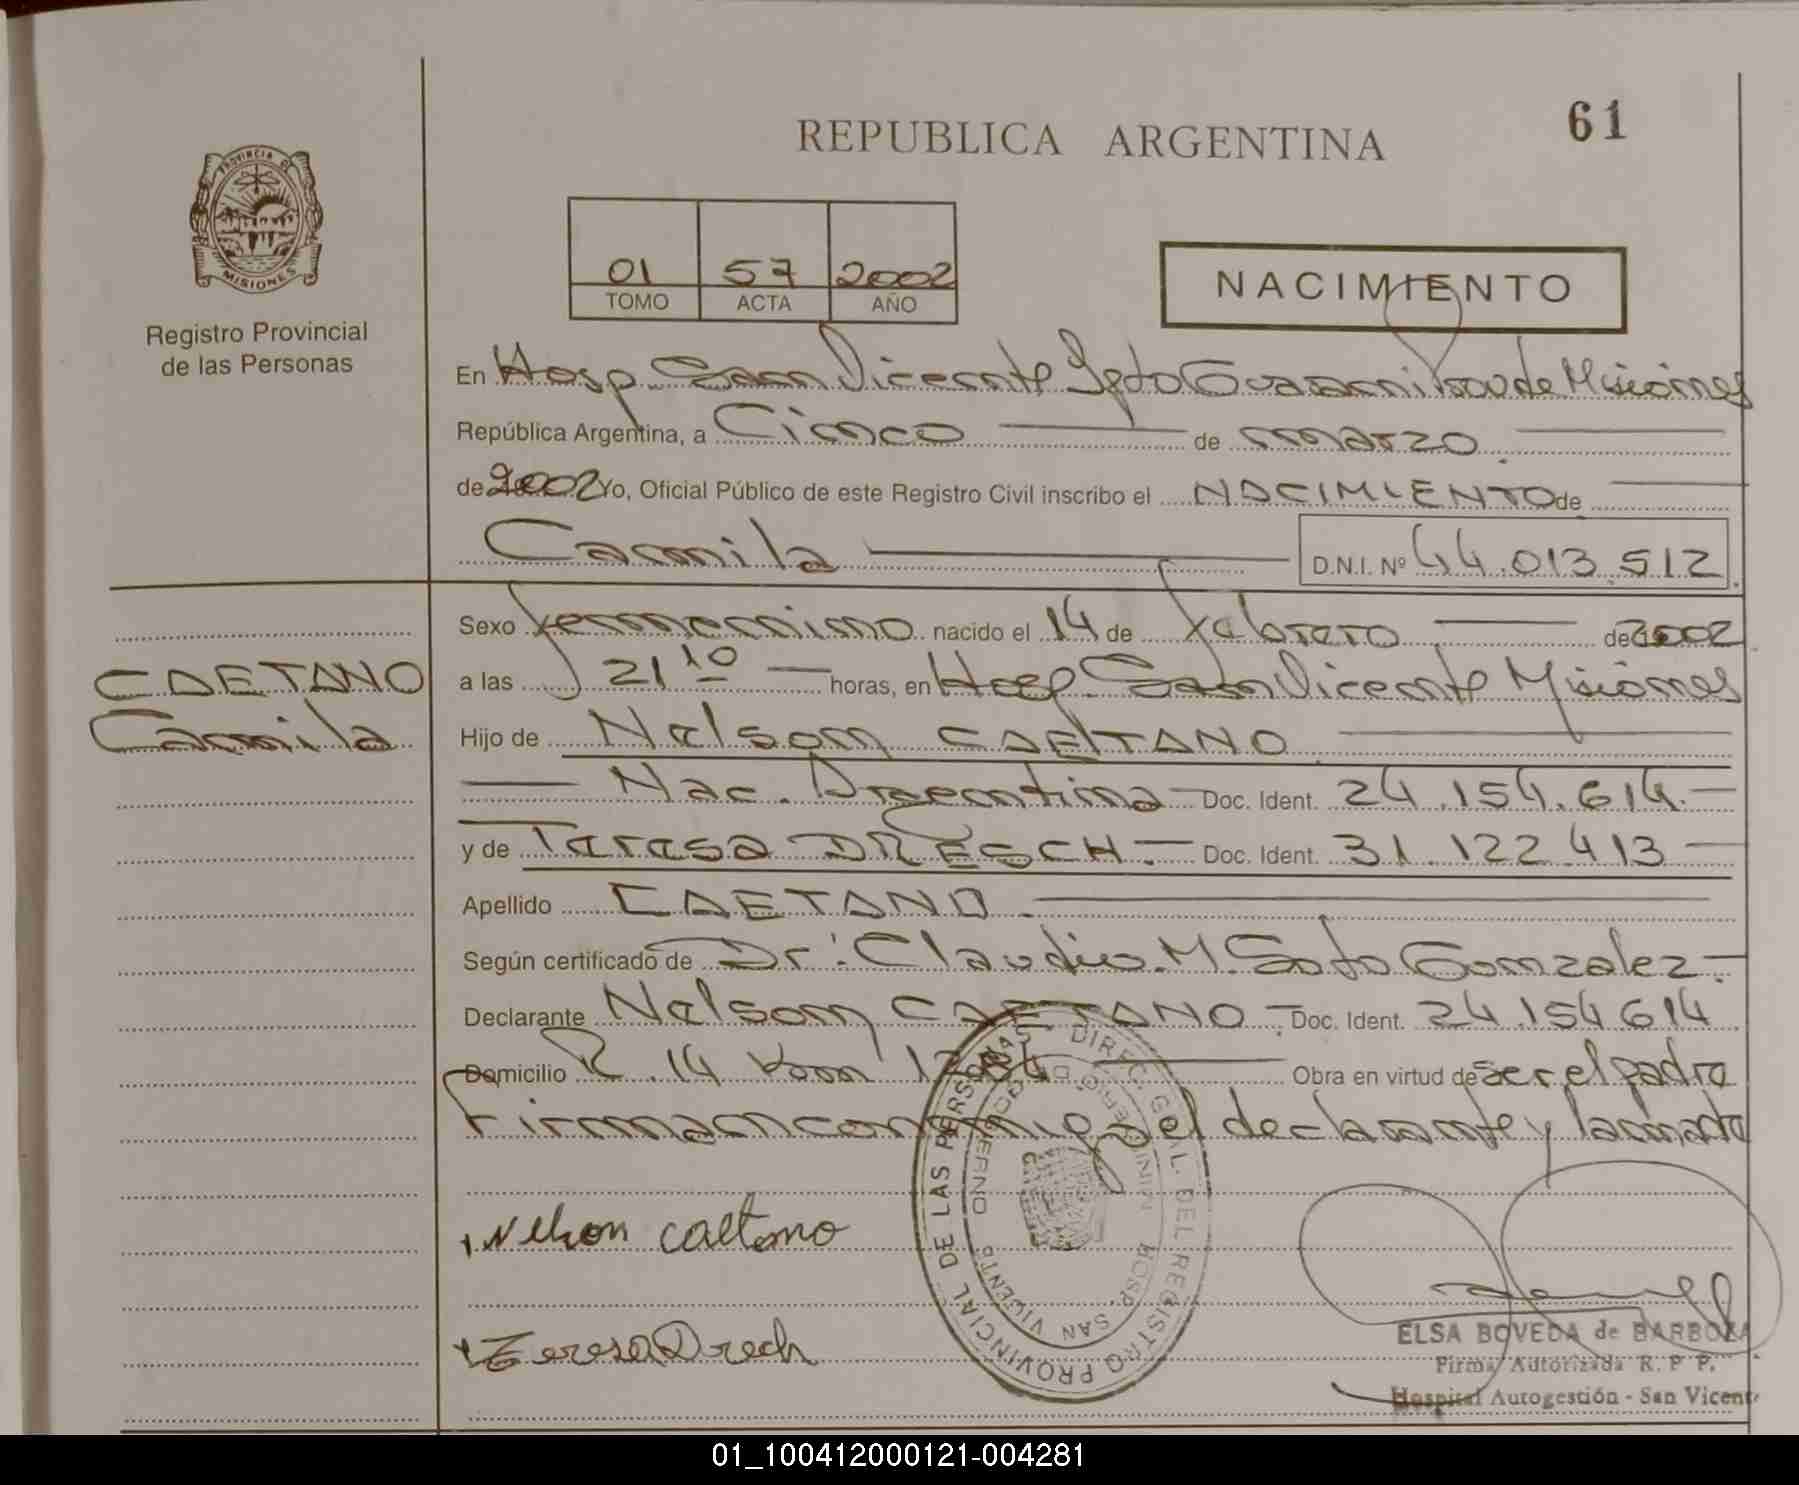 61
REPUBLICA ARGENTINA
PROVINCIA DE
MISIONES
Registro Provincial
de las Personas
01 57 2002
TOMO ACTA AÑO
NACIMIENTO
En Hosp San Vicente Dpto Guarani Prov de Misiones
República Argentina, a Cinco de marzo
de 2002 Yo, Oficial Público de este Registro Civil inscribo el NACIMIENTO de
Camila D.N.I. Nº 44.013.512
CAETANO
Camila
Sexo femenino nacido el 14 de febrero de 2002
a las 21 10 horas, en Hosp San Vicente Misiones
Hijo de Nelson CAETANO
Nac. Argentina Doc. Ident. 24.154.614.
y de Teresa DRESCH. Doc. Ident. 31.122.413
Apellido CAETANO.
Según certificado de Dr: Claudio M. Soto Gonzalez.
Declarante Nelson CAETANO Doc. Ident. 24.154 614
Domicilio R. 14 Km Obra en virtud de ser el padre
Firman conmigo el declarante y la madre
Nelson Caetano
Teresa Drech
DIREC. GRL. DEL REGISTRO PROVINCIAL DE LAS PERSONAS
HOSP SAN VICENTE
ELSA BOVEDA de BARBOZA
Firma Autorizada R. P. P.
Hospital Autogestión - San Vicente
01_100412000121-004281